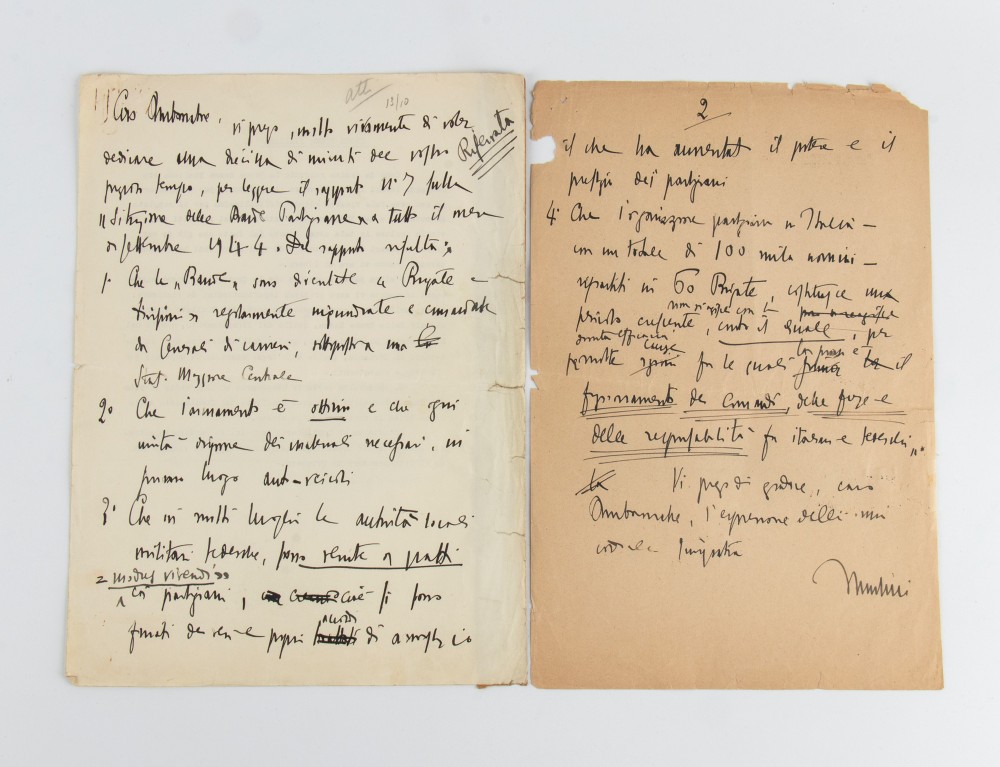 att
13/10
1) Caro Ambasciatore,
vi prego, molto vivamente di voler
Riservata
dedicare una decina di minuti del vostro
prezioso tempo, per leggere il rapporto n° 7 sulla
"Situazione delle Bande Partigiane" a tutto il mese
di settembre 1944. Dal rapporto risulta:
1. Che le "Bande" sono diventate "Brigate e
divisioni" regolarmente inquadrate e comandate
da Generali di carriera, sottoposte a uno
Stato Maggiore Centrale
2° Che l'armamento è ottimo e che ogni
unità dispone dei materiali necessari, in
primo luogo auto-veicoli
3° Che in molti luoghi le autorità locali
militari tedesche, sono venute a patti
"modus vivendi"
coi partigiani, cioè si sono
accordi
firmati dei veri e propri di
2
il che ha aumentato il potere e il
prestigio dei partigiani
4° Che l'organizzazione partigiana in Italia –
con un totale di 100 mila uomini –
ripartiti in 60 Brigate, costituisce un
non si agisce con la
pericolo crescente, contro il quale, per
dovuta efficacia
cause
molte fra le quali il
frazionamento dei comandi, delle forze e
della responsabilità fra italiani e tedeschi".
Vi prego di gradire, caro
Ambasciatore, l'espressione della mia
cordiale simpatia
Mussolini